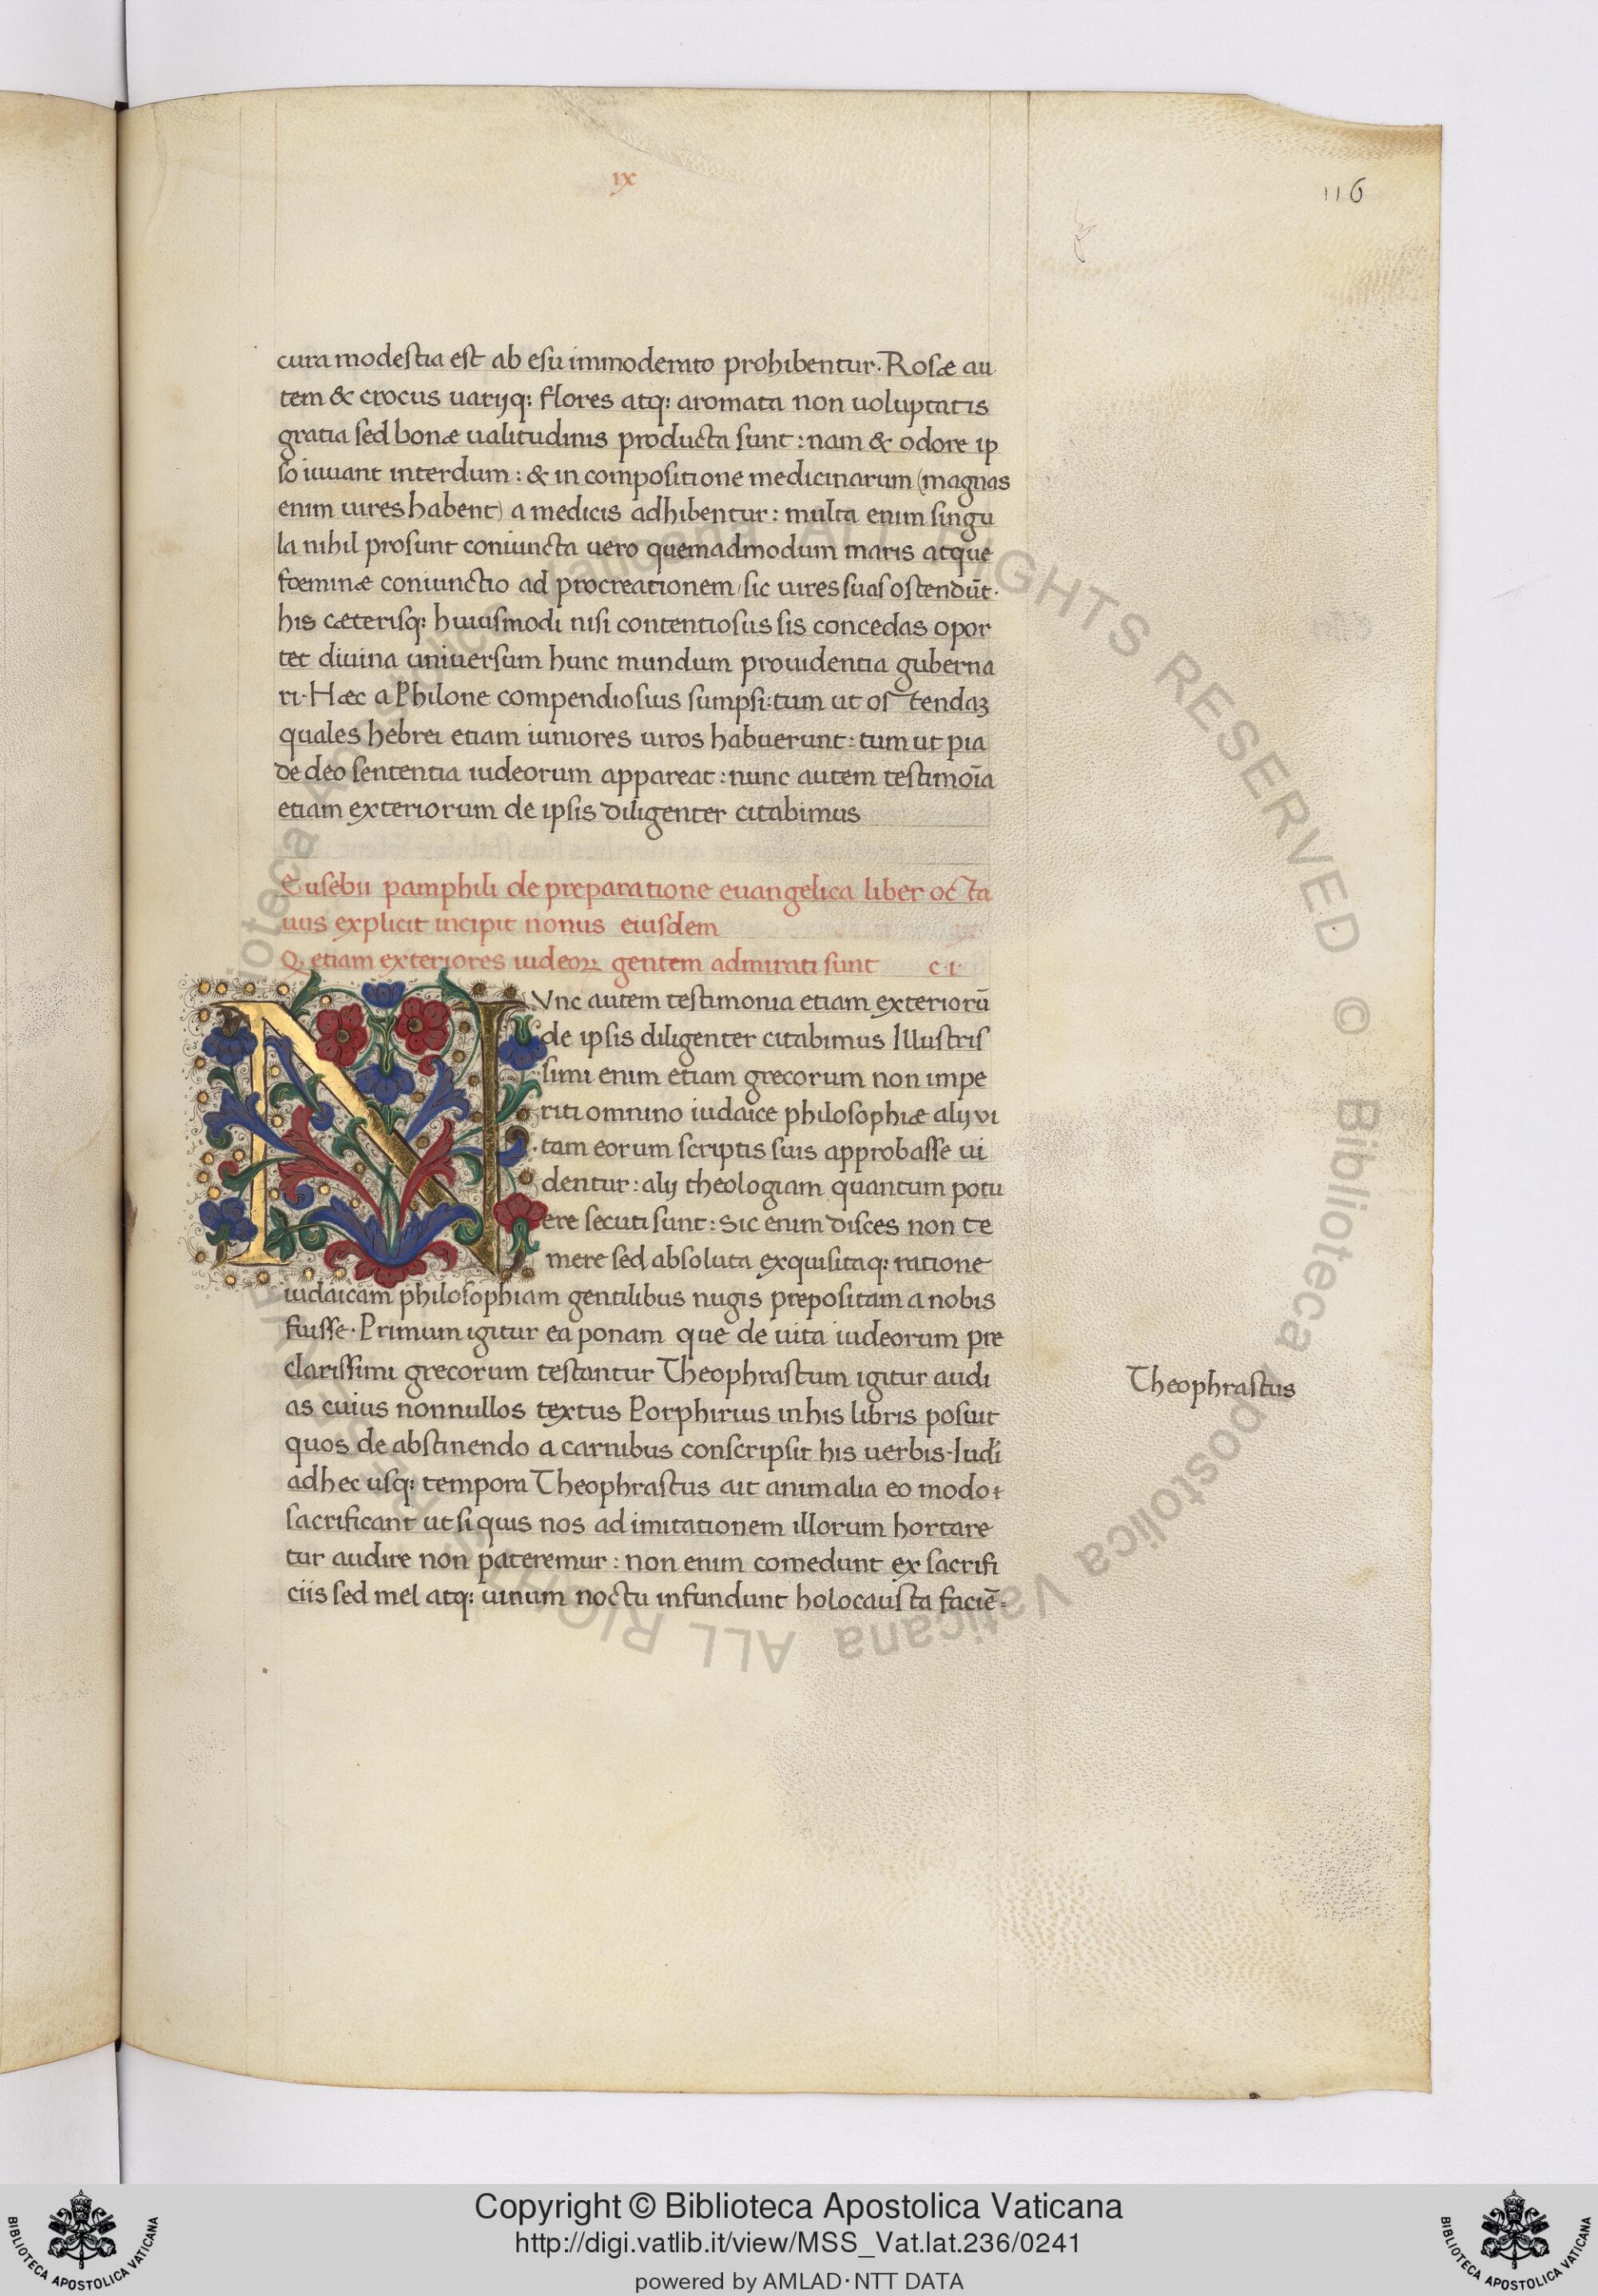 ıx
116
cura modestia est ab esu immoderato prohibentur. Rosæ au
tem & crocus uarijq: flores atq: aromata non uoluptatis
gratia sed bonæ ualitudinis producta sunt: nam & odore ip
so iuuant interdum: & in compositione medicinarum (magnas
enim uires habent) a medicis adhibentur: multa enim singu
la nihil prosunt coniuncta uero quemadmodum maris atque
foeminæ coniunctio ad procreationem/sic uires suas ostendūt.
his cæterisq: huiusmodi nisi contentiosus sis concedas opor
tet diuina uniuersum hunc mundum prouidentia guberna
ri. Hæc a Philone compendiosius sumpsi: tum ut ostendaꝫ
quales hebrei etiam iuniores uiros habuerunt: tum ut pia
de deo sententia iudeorum appareat: nunc autem testimoīa
etiam exteriorum de ipsis diligenter citabimus
Eusebii pamphili de preparatione euangelica liber octa
uus explicit incipit nonus eiusdem
Q. etiam exteriores iudeoꝝ gentem admirati sunt c. i.
NVnc autem testimonia etiam exteriorū
de ipsis diligenter citabimus Illustris
simi enim etiam grecorum non impe
riti omnino iudaice philosophiæ alij vi
tam eorum scriptis suis approbasse ui
dentur: alij theologiam quantum potu
ere secuti sunt: sic enim disces non te
mere sed absoluta exquisitaq: ratione
iudaicam philosophiam gentilibus nugis prepositam a nobis
fuisse. Primum igitur ea ponam que de uita iudeorum pre
clarissimi grecorum testantur Theophrastum igitur audi
as cuius nonnullos textus Porphirius in his libris posuit
quos de abstinendo a carnibus conscripsit his uerbis. Iudi
adhec usq: tempora Theophrastus ait animalia eo modo
sacrificant ut si quis nos ad imitationem illorum hortare
tur audire non pateremur: non enim comedunt ex sacrifi
ciis sed mel atq: uinum noctu infundunt holocausta faciē-
Theophrastus
ALL RIGHTS RESERVED © Biblioteca Apostolica Vaticana ALL RIGHTS RESERVED © Biblioteca Apostolica Vaticana
BIBLIOTECA APOSTOLICA VATICANA
Copyright © Biblioteca Apostolica Vaticana
http://digi.vatlib.it/view/MSS_Vat.lat.236/0241
powered by AMLAD·NTT DATA
BIBLIOTECA APOSTOLICA VATICANA